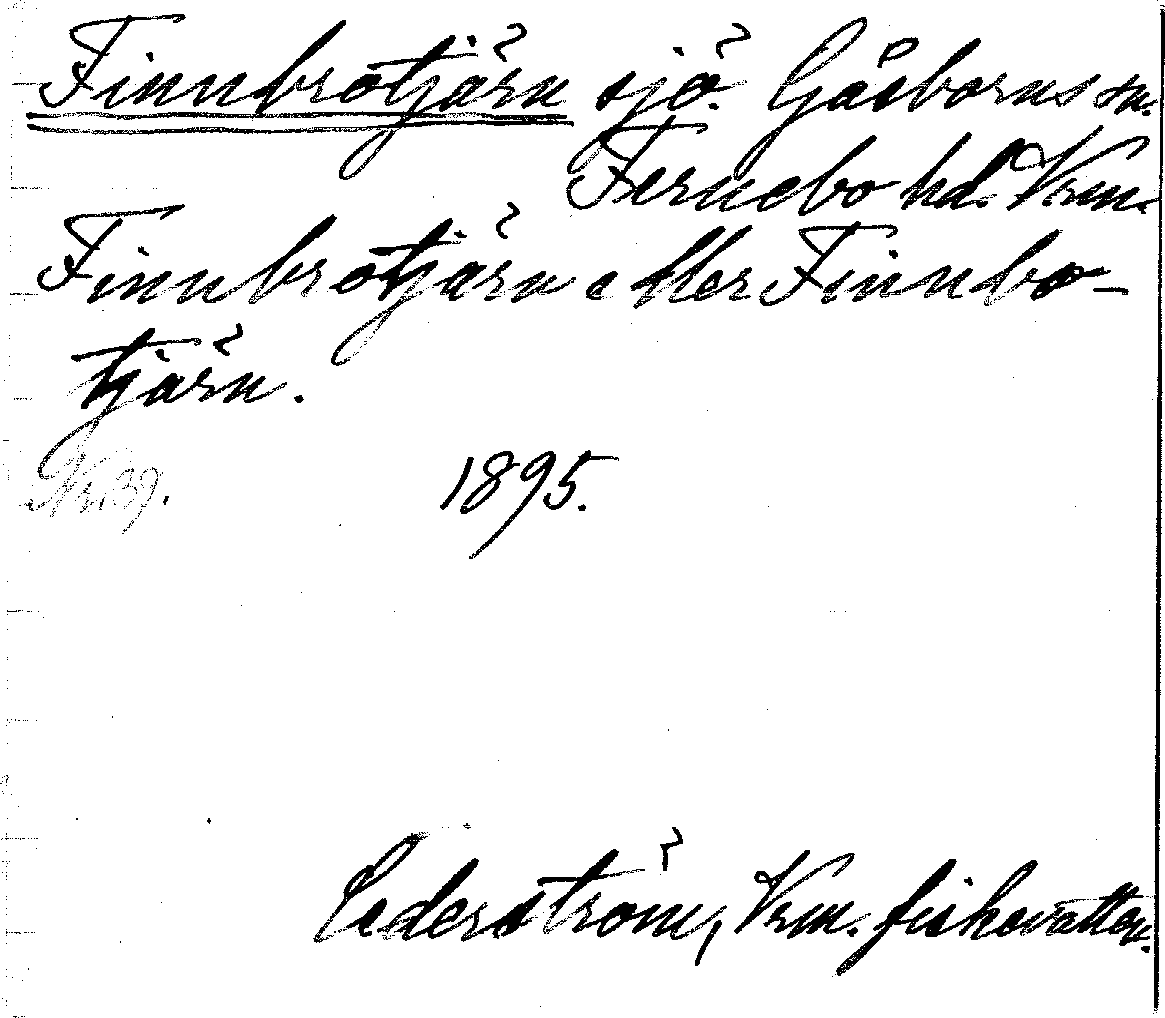 Finnbrotjärn sjö. Gåsborns sn.
Fernebo hd. Vrm.
Finnbrotjärn eller Finnbo-
tjärn.
Nr. 39. 1895.
Cederström, Vrm. fiskevatten.